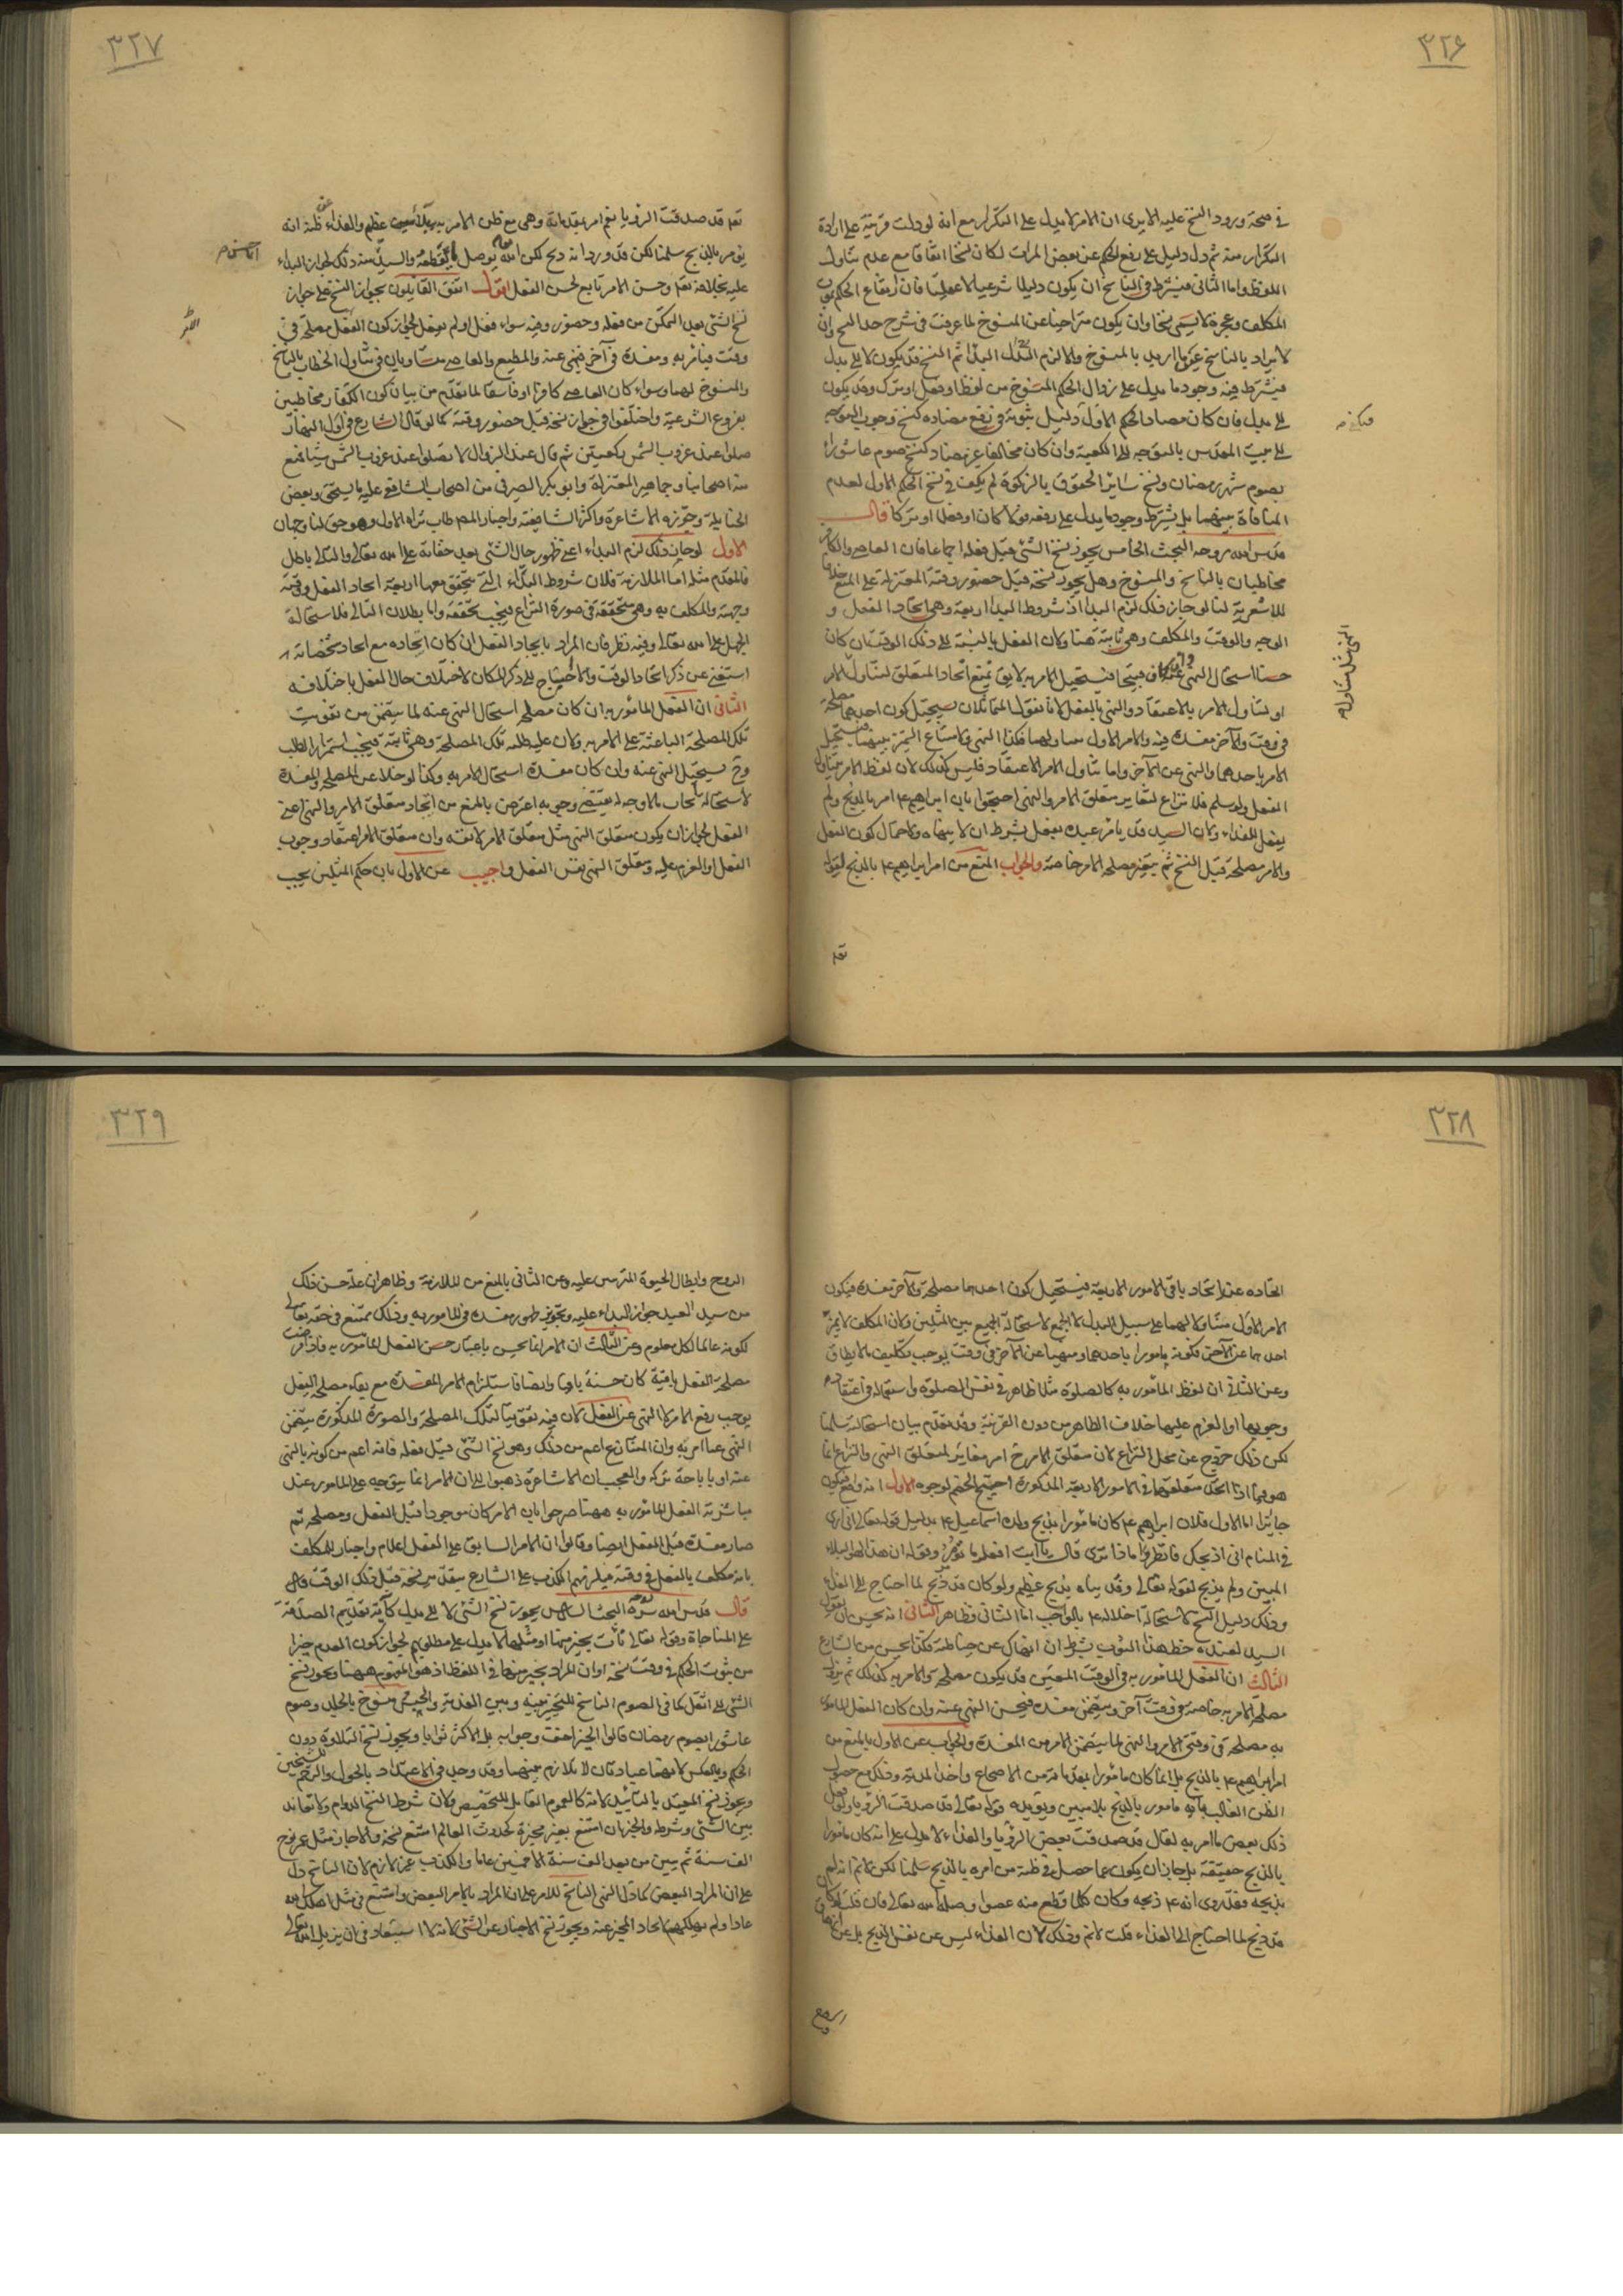 ٣٢۶
في صحة ورود النسخ عليه الا يرى ان الامر لا يدل على التكرار مع انه لو دلت قرينة على ارادة
التكرار منه ثم دل دليل على رفع الحكم عن بعض المرات لكان نسخا اتفاقا مع عدم تناول
اللفظ واما الثاني فيشترط في الناسخ ان يكون دليلا شرعيا لا عقليا فان ارتفاع الحكم بموت
المكلف وعجزه لا يسمى نسخا وان يكون متراخيا عن المنسوخ لما عرفت في شرح حد النسخ وان
لا يراد بالناسخ عين ما اريد بالمنسوخ والا لزم البداء ثم النسخ قد يكون لا الى بدل
فيشترط فيه وجود ما يدل على زوال الحكم المنسوخ من لفظ او فعل او ترك وقد يكون
الى بدل فان كان مضادا لحكم الاول دليل ثبوته في رفع مضاده كنسخ وجوب التوجه
الى بيت المقدس بالتوجه الى الكعبة وان كان مخالفا غير مضاد كنسخ صوم عاشورا
بصوم شهر رمضان ونسخ سائر الحقوق بالزكوة لم يكف في نسخ الحكم الاول لعدم
المنافاة بينهما بل يشترط وجود ما يدل على رفعه قولا كان او فعلا او تركا قال
قدس الله روحه البحث الخامس يجوز نسخ الشئ قبل فعله اجماعا فان العاصي والكافر
مخاطبان بالناسخ والمنسوخ وهل يجوز نسخه قبل حضور وقته المعتزلة على المنع خلافا
للاشعرية لنا لو جاز ذلك لزم البداء اذ شروط البداء اربعة وهي اتحاد الفعل و
الوجه والوقت والمكلف وهي ثابتة هنا ولان الفعل بالنسبة الى ذلك الوقت ان كان
حسنا استحال النهي عنه وان كان قبيحا فيستحيل الامر به لا يق نمنع اتحاد المتعلق لتناول الامر
او لتناول الامر بالاعتقاد والنهي بالفعل لانا نقول المتماثلان يستحيل كون احدهما مصلحة
في وقت والآخر مفسدة فيه والامر الاول متناولهما فكذا النهي ولامتناع التميز بينهما فيستحيل
الامر باحدهما والنهي عن الآخر واما تناول الامر الاعتقاد فليس كذلك لان لفظ الامر تناول
الفعل ولو سلم فلا نزاع لتغاير متعلق الامر والنهي احتجوا بان ابراهيم ع امر بالذبح ولم
يفعل للفداء ولان السيد قد يامر عبده بفعل بشرط ان لا ينهاه ولاحتمال كون الفعل
والامر مصلحة قبل النسخ ثم يتغير مصلحة الامر خاصة والجواب المنع من امر ابراهيم ع بالذبح لقوله
النهي مثل ما تناوله
٣٢٧
تعم قد صدقت الرؤيا نعم امر بمقدماته وهي مع ظن الامر به بلاء مبين عظيم والفداء عن ظنه انه
يؤمر بالذبح سلمنا لكن قد ورد انه ذبح لكن الله يوصل ما يقطعه والسيد منه ذلك لجواز البداء
عليه بخلافه تعم وحسن الامر تابع لحسن الفعل اقول اتفق القائلون بجواز النسخ على جواز
نسخ الشئ بعد التمكن من فعله وحضور وقته سواء فعل او لم يفعل لجواز كون الفعل مصلحة في
وقت فيامر به ومفسدة في آخر فينهى عنه والمطيع والعاصي متساويان في تناول الخطاب بالناسخ
والمنسوخ لهما وسواء كان العاصي كافرا او فاسقا لما تقدم من بيان كون الكفار مخاطبين
بفروع الشرعية واختلفوا في جواز نسخه قبل حضور وقته كما لو قال الشارع في اول النهار
صلوا عند غروب الشمس ركعتين ثم قال عند الزوال لا تصلوا عند غروب الشمس شيئا فمنع
منه اصحابنا وجماهير المعتزلة وابو بكر الصيرفي من اصحاب الشافعي عليه ما يستحق وبعض
الحنابلة وجوزه الاشاعرة واكثر الشافعية واختار المصـ طاب ثراه الاول وهو حق لنا وجهان
الاول لو جاز ذلك لزم البداء اعني ظهور حال الشئ بعد خفائه على الله تعالى والتالي باطل
فالمقدم مثله اما الملازمة فلان شروط البداء التي يتحقق معها اربعة اتحاد الفعل ووقته
وجهته والمكلف به وهي متحققة في صورة النزاع فيجب تحققه واما بطلان التالي فلاستحالة
الجهل على الله تعالى وفيه نظر فان المراد باتحاد الفعل ان كان اتحاده مع اتحاد مشخصاته
استغنى عن ذكر اتحاد الوقت والا احتيج الى ذكر المكان لاختلاف حال الفعل باختلافه
الثاني ان الفعل المأمور به ان كان مصلحة استحال النهي عنه لما يتضمن من تفويت
تلك المصلحة الباعثة على الامر به ولان علية طلبه تلك المصلحة وهي ثابتة فيجب استمرار الطلب
وح يستحيل النهي عنه وان كان مفسدة استحال الامر به وكذا لو خلا عن المصلحة والمفسدة
لاستحالة ايجاب ما لا وجه له يقتضي وجوبه اعترض بالمنع من اتحاد متعلق الامر والنهي اعني
الفعل لجواز ان يكون متعلق النهي مثل متعلق الامر لا نفسه وان متعلق الامر اعتقاد وجوب
الفعل او العزم عليه ومتعلق النهي نفس الفعل واجيب عن الاول بان حكم المثلين يجب
٣٢٨
اتحاده عند اتحاد باقي الامور الاربعة فيستحيل كون احدهما مصلحة والآخر مفسدة فيكون
الامر الاول متناولا لهما على سبيل البدل لا الجمع لاستحالة الجمع بين المثلين ولان المكلف لا يميز
احدهما عن الآخر فكونه مامورا باحدهما ومنهيا عن الآخر في وقت يوجب تكليف ما لا يطاق
وعن الثاني ان لفظ المأمور به كالصلوة مثلا ظاهر في نفس الصلوة واستعماله في اعتقاد
وجوبها او العزم عليها خلاف الظاهر من دون القرينة وقد تقدم بيان استحالته سلمنا
لكن ذلك خروج عن محل النزاع لان متعلق الامر ح امر مغاير لمتعلق النهي والنزاع انما
هو فيما اذا اتحد متعلقهما في الامور الاربعة المذكورة احتج الخصم لوجوه الاول انه واقع فيكون
جائزا اما الاول فلان ابراهيم ع كان مامورا بذبح ولده اسماعيل ع بدليل قوله تعالى اني ارى
في المنام اني اذبحك فانظر ماذا ترى قال يا ابت افعل ما تؤمر وقوله ان هذا لهو البلاء
المبين ولم يذبح لقوله تعالى وفديناه بذبح عظيم ولو كان قد ذبح لما احتاج الى الفداء
وذلك دليل النسخ لاستحالة اخلاله ع بالواجب اما الثاني فظاهر الثاني انه يحسن ان يقول
السيد لعبده خط هذا الثوب بشرط ان لا انهاك عن خياطته فكذا يحسن من الشارع
الثالث ان الفعل المامور به في الوقت المعين قد يكون مصلحة والامر به كذلك ثم يزول
مصلحة الامر به خاصة في وقت آخر ويتضمن مفسدة فيحسن النهي عنه وان كان الفعل المامور
به مصلحة في وقتي الامر والنهي لما يتضمن الامر من المفسدة والجواب عن الاول بالمنع من
امر ابراهيم ع بالذبح بل انما كان مامورا بمقدماته من الاضجاع واخذ المدية وذلك مع حصول
الظن الغالب بانه مامور بالذبح بلاء مبين ويؤيده قوله تعالى قد صدقت الرؤيا ولو فعل
ذلك بعض ما امر به لقال قد صدقت بعض الرؤيا والفداء لا يدل على انه كان مامورا
بالذبح حقيقة بل جاز ان يكون عما حصل في ظنه من امره بالذبح سلمنا لكن لا نم انه لم
يذبحه فقد روى انه ع ذبحه وكان كلما قطع منه عضوا وصله الله تعالى فان قلت لو كان
قد ذبح لما احتاج الى الفداء قلت لا نم وذلك لان الفداء ليس عن نفس الذبح بل عن ازهاق
٣٢٩
الروح وابطال الحيوة المترتبين عليه وعن الثاني بالمنع من الملازمة وظاهر ان علة حسن ذلك
من سيد العبيد جواز البداء عليه وتجويز ظهور مفسدة في المامور به وذلك ممتنع في حقه تعالى
لكونه عالما لكل معلوم وعن الثالث ان الامر انما يحسن باعتبار حسن الفعل المأمور به فاذا فرضت
مصلحة الفعل باقية كان حسنه باقيا وايضا فاستلزام الامر المفسدة مع بقاء مصلحة الفعل
يوجب رفع الامر لا النهي عن الفعل لان فيه تفويتا لتلك المصلحة والصورة المذكورة يتضمن
النهي عما امر به وان المتنازع اعم من ذلك وهو نسخ الشئ قبل فعله فانه اعم من كونه بالنهي
عنه او باباحة تركه والعجب ان الاشاعرة ذهبوا الى ان الامر انما يتوجه على المامور عند
مباشرته الفعل المامور به وههنا صرحوا بان الامر كان موجودا قبل الفعل ومصلحة ثم
صار مفسدة قبل الفعل ايضا وقالوا ان الامر السابق على الفعل اعلام واخبار للمكلف
بانه مكلف بالفعل في وقته فيلزمهم الكذب على الشارع بتقدير نسخه قبل ذلك الوقت
قال قدس الله سره البحث السادس يجوز نسخ الشئ لا الى بدل كآية تقديم الصدقة
على المناجاة وقوله تعالى نأت بخير منها او مثلها لا يدل على مطلوبهم لجواز كون العدم خيرا
من ثبوت الحكم في وقت نسخه او ان المراد بخير منها في اللفظ اذ هو المفهوم ههنا ويجوز نسخ
الشئ الى اثقل كما في الصوم الناسخ للتخيير بينه وبين الفدية والحبس منسوخ بالجلد وصوم
عاشورا بصوم رمضان قالوا الخير اخف وجوابه بل الاكثر ثوابا ويجوز نسخ التلاوة دون
الحكم وبالعكس لانهما عبادتان لا تلازم بينهما وقد وجد في الاعتداد بالحول والرجم للشيخين
ويجوز نسخ المقيد بالتأبيد لانه كالعموم القابل للتخصيص ولان شرط النسخ الدوام ولا تعاند
بين الشئ وشرطه والخبر ان امتنع تغير مخبره كحدوث العالم امتنع نسخه والا جاز مثل عمر نوح
الف سنة ثم يبين من بعد الف سنة الا خمسين عاما والكذب غير لازم لان الناسخ دل
على ان المراد البعض كما دل النهي الناسخ للامر على ان المراد بالامر البعض وامتنع في مثل اهلك الله
عادا ولم يهلكهم لاتحاد المخبر عنه ويجوز نسخ الاخبار عن الشئ لانه لا استبعاد في ان يزيل الله تعالى